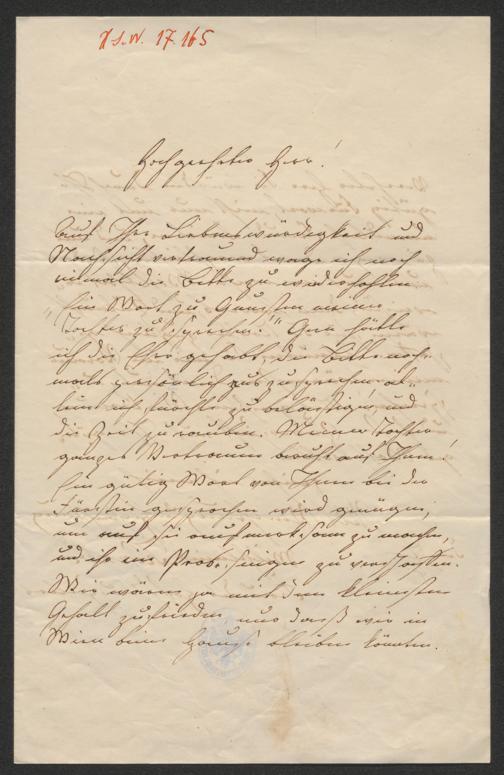 H.I.N. 17.165
Hochgeehrter Herr!
Auf Ihre Liebenswürdigkeit und
Nachsicht vertrauend wage ich noch
einmal die Bitte zu wiederhohlen
"Ein Wort zu Gunsten meiner
Tochter zu sprechen!" Gern hätte
ich die Ehre gehabt, die Bitte noch-
mals persönlich auszusprechen al-
lein ich fürchte zu belästigen, und
die Zeit zu rauben. Meiner Tochter
ganzes Vertrauen beruht auf Ihnen!
Ein gütig Wort von Ihnen bei der
Fürstin gesprochen wird genügen,
um auf sie aufmerksam zu machen,
und ihr ein Probesingen zu verschaffen.
Wir wären ja mit dem kleinsten
Gehalt zufrieden nur daß wir in
Wien beim Hause bleiben könnten.